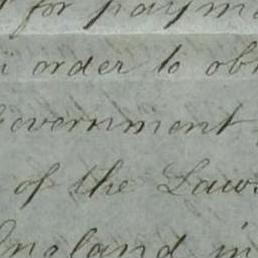 for payme
in order to ob
Government
of the Laws
England in